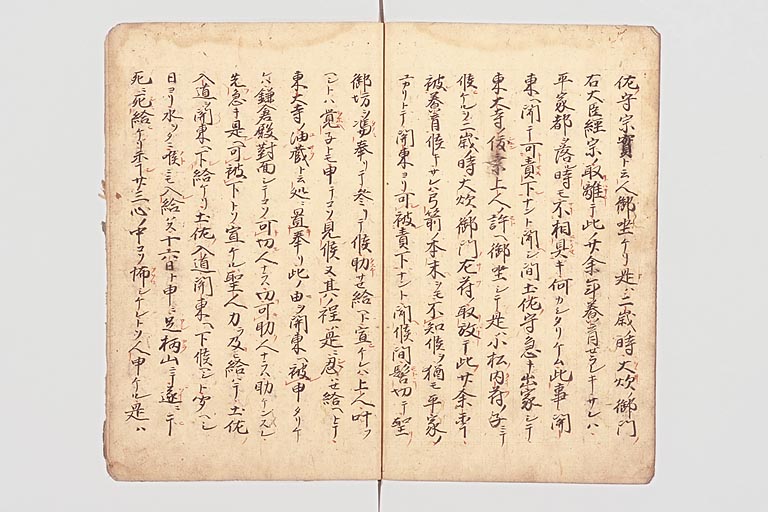 佐守宗實ト云人御坐ケリ是ハ三歳時大炊ノ御門
右大臣經宗ノ取離テ此ノ廿余年養育セラレキサレハ
平家都ヲ落時モ不相具キ何カシタリケム此事ヲ聞
東ヘ聞テ可責下ナント聞シ間土佐守急キ出家シテ
東大寺ノ 上人許ヘ御坐シテ是ハ小松内府ノ子ニテ
候ケルヲ三歳時大炊ノ御門左府取放テ此廿余年
被養育候ケレハ弓箭ノ本末ヲモ不知候ヲ猶モ平家ノ
トテ関東ヨリ可被責下ナント聞候間髻切テ聖
御坊ヲ憑奉リテ参リテ候助サセ給ヘト宣ケレハ上人叶ヲ
ントハ覚子トモ申テコソ見候又其ノ程ハ是ニ忍ハセ給ヘトテ
東大寺ノ油蔵ト云処ニ置奉リ此ノ由ヲ関東ヘ被申タリケ
ハ鎌倉殿對面シテコソ可切人ナラハ切可助人ナラハ助ケンスレ
先急キ是ヘ可被下トソ宣ケル聖人力ヲ及給ハテ土佐
入道ヲ関東ヘ下給ケリ土佐入道関東ヘ下候ヘシト
日ヨリ水ヲタニ喉ニモ入給ハス十六日ト申ニ足柄山ニテ遂ニ
死ニ死給ケリ 心ノ中コソ怖シケレトソ人申ケル是ハ